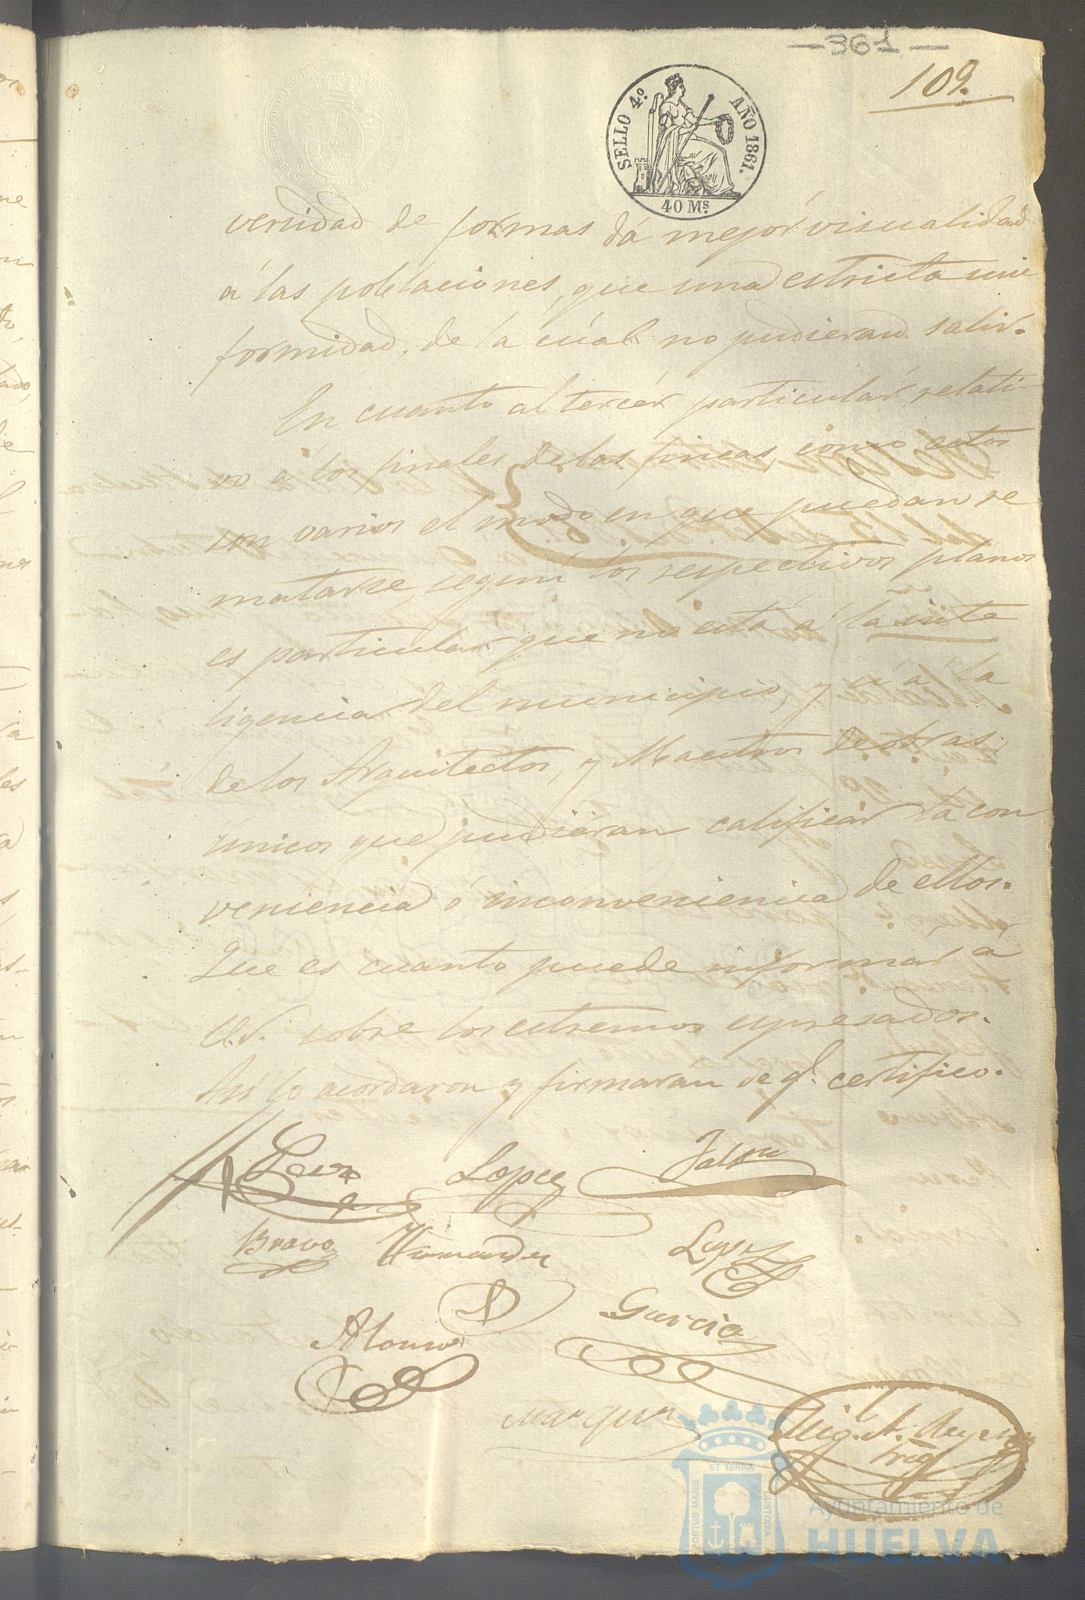 —361—
109.
SELLO 4º AÑO 1861.
40 Ms.
versidad de formas dá mejor visualidad
á las poblaciones, que una estricta uni
formidad, de la cual no pudieran salir.
En cuanto al tercer particular relati-
vo á los finales de las fincas, como estos
son varios el modo en que puedan re
matarse, segun los respectivos planos
es particular que no está á la inte
ligencia del municipio, y si á la
de los Arquitectos, y Maestros de obras,
unicos que pudieran calificar la con
veniencia ó inconveniencia de ellos.
Que es cuanto puede informar á
V.S. sobre los estremos espresados.
Asi lo acordaron y firmarán de q.e certifico.
Leon Lopez
Bravo Hernandez Lopez
Garcia
Alonso
Marquez
srio
PORTUS MARIS ET TERRÆ CUSTODIA
Ayuntamiento de
HUELVA